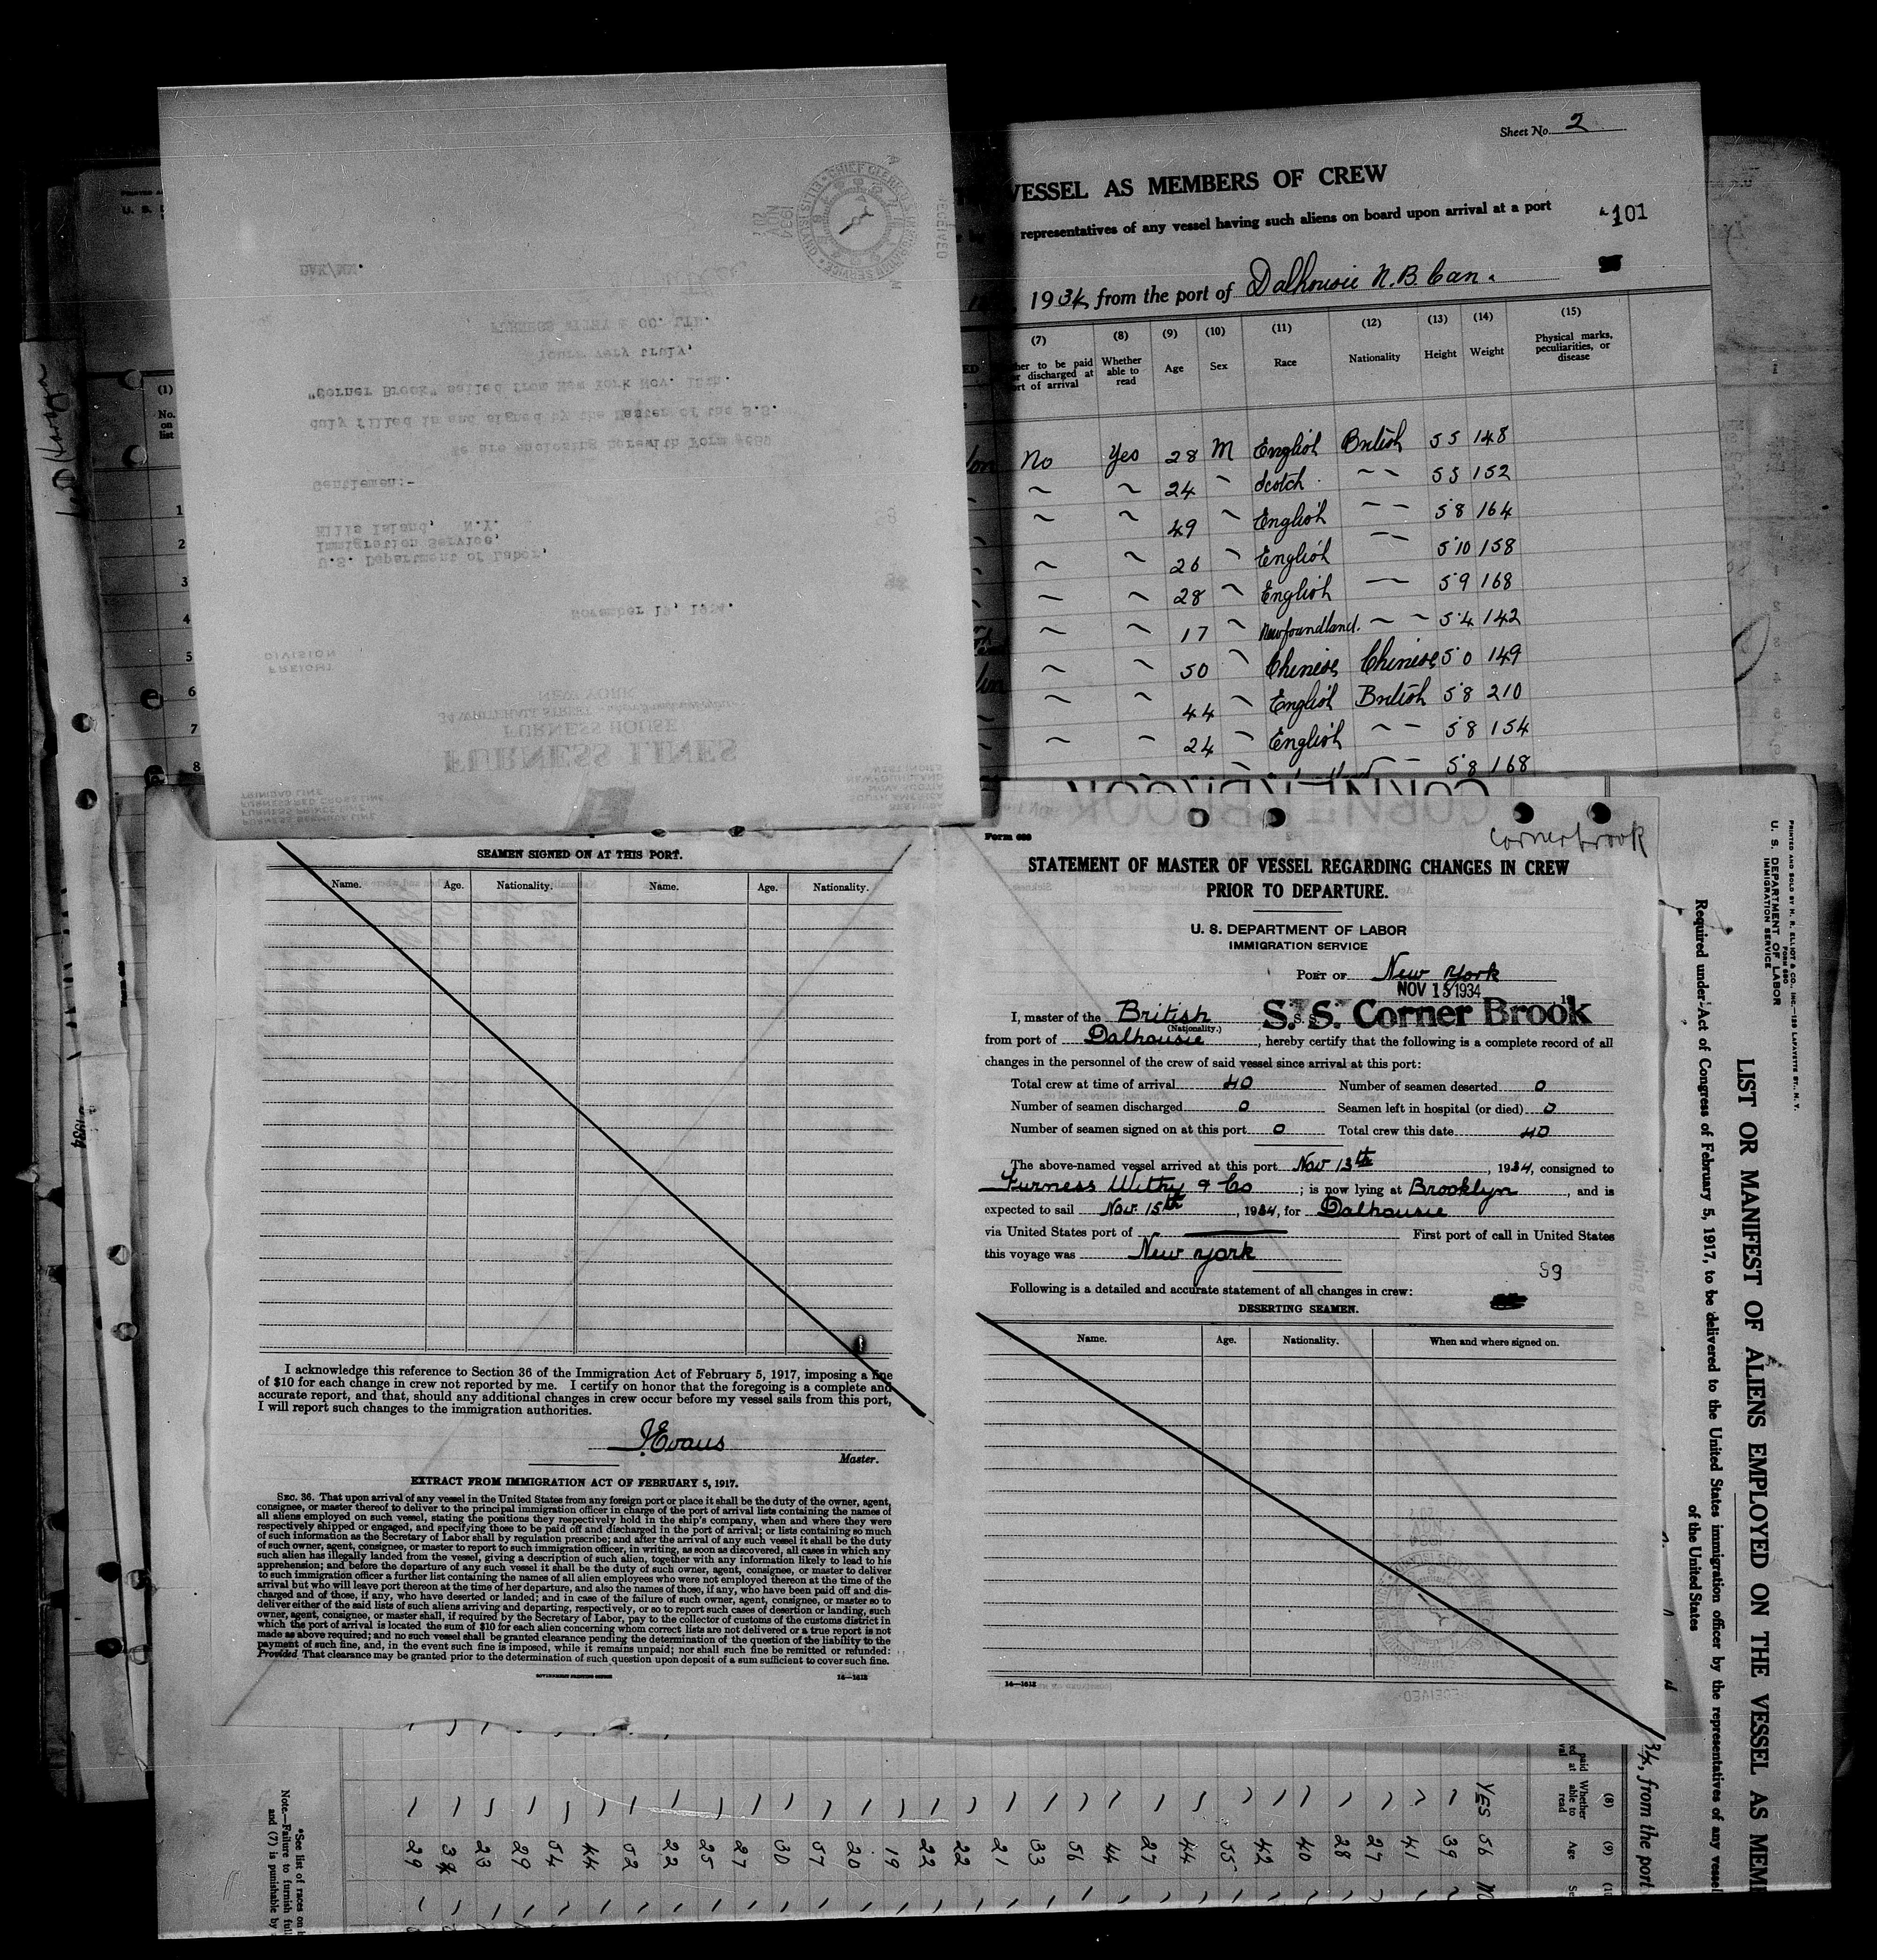 Sheet No. 2
VESSEL AS MEMBERS OF CREW
representatives of any vessel having such aliens on board upon arrival at a port
101
1934, from the port of Dalhousie N.B. Can.
(7) (8) (9) (10) (11) (12) (13) (14) (15)
her to be paid or discharged at ort of arrival Whether able to read Age Sex Race Nationality Height Weight Physical marks, peculiarities, or disease
No Yes 28 M English British 5 5 148
~ ~ 24 ~ Scotch ~ ~ 5 5 152
~ ~ 49 ~ English ~ ~ 5 8 164
~ ~ 26 ~ English ~ ~ 5 10 158
~ ~ 28 ~ English ~ ~ 5 9 168
~ ~ 17 ~ Newfoundland. ~ ~ 5 4 142
~ ~ 50 ~ Chinese Chinese 5 0 149
~ ~ 44 ~ English British 5 8 210
~ ~ 24 ~ English ~ ~ 5 8 154
5 8 168
FURNESS LINES
FURNESS HOUSE
34 WHITEHALL STREET
NEW YORK
FREIGHT
DIVISION
November 19, 1934.
U.S. Department of Labor,
Immigration Service,
Ellis Island, N.Y.
Gentlemen:-
We are enclosing herewith Form #689
duly filled in and signed by the Master of the S.S.
"Corner Brook" sailed from New York Nov. 15th.
Yours very truly,
FURNESS WITHY & CO. LTD.
DAK/MM.
RECEIVED
NOV 20 1934
CORNERBROOK
SEAMEN SIGNED ON AT THIS PORT.
Name. Age. Nationality. Name. Age. Nationality.
I acknowledge this reference to Section 36 of the Immigration Act of February 5, 1917, imposing a fine
of $10 for each change in crew not reported by me. I certify on honor that the foregoing is a complete and
accurate report, and that, should any additional changes in crew occur before my vessel sails from this port,
I will report such changes to the immigration authorities.
J. Evans
Master.
EXTRACT FROM IMMIGRATION ACT OF FEBRUARY 5, 1917.
SEC. 36. That upon arrival of any vessel in the United States from any foreign port or place it shall be the duty of the owner, agent,
consignee, or master thereof to deliver to the principal immigration officer in charge of the port of arrival lists containing the names of
all aliens employed on such vessel, stating the positions they respectively hold in the ship's company, when and where they were
respectively shipped or engaged, and specifying those to be paid off and discharged in the port of arrival; or lists containing so much
of such information as the Secretary of Labor shall by regulation prescribe; and after the arrival of any such vessel it shall be the duty
of such owner, agent, consignee, or master to report to such immigration officer, in writing, as soon as discovered, all cases in which any
such alien has illegally landed from the vessel, giving a description of such alien, together with any information likely to lead to his
apprehension; and before the departure of any such vessel it shall be the duty of such owner, agent, consignee, or master to deliver
to such immigration officer a further list containing the names of all alien employees who were not employed thereon at the time of the
arrival but who will leave port thereon at the time of her departure, and also the names of those, if any, who have been paid off and dis-
charged and of those, if any, who have deserted or landed; and in case of the failure of such owner, agent, consignee, or master so to
deliver either of the said lists of such aliens arriving and departing, respectively, or so to report such cases of desertion or landing, such
owner, agent, consignee, or master shall, if required by the Secretary of Labor, pay to the collector of customs of the customs district in
which the port of arrival is located the sum of $10 for each alien concerning whom correct lists are not delivered or a true report is not
made as above required; and no such vessel shall be granted clearance pending the determination of the question of the liability to the
payment of such fine, and, in the event such fine is imposed, while it remains unpaid; nor shall such fine be remitted or refunded:
Provided That clearance may be granted prior to the determination of such question upon deposit of a sum sufficient to cover such fine.
GOVERNMENT PRINTING OFFICE 14—1612
cornerbrook
Form 689
STATEMENT OF MASTER OF VESSEL REGARDING CHANGES IN CREW
PRIOR TO DEPARTURE.
U. S. DEPARTMENT OF LABOR
IMMIGRATION SERVICE
PORT OF New York
NOV 15 1934
I, master of the British S. S. Corner Brook
(Nationality.)
from port of Dalhousie, hereby certify that the following is a complete record of all
changes in the personnel of the crew of said vessel since arrival at this port:
Total crew at time of arrival 40 Number of seamen deserted 0
Number of seamen discharged 0 Seamen left in hospital (or died) 0
Number of seamen signed on at this port 0 Total crew this date 40
The above-named vessel arrived at this port Nov 13th, 1934, consigned to
Furness Withy & Co; is now lying at Brooklyn, and is
expected to sail Nov. 15th, 1934, for Dalhousie
via United States port of ——— First port of call in United States
this voyage was New York
99
Following is a detailed and accurate statement of all changes in crew:
DESERTING SEAMEN.
Name. Age. Nationality. When and where signed on.
14—1612
PRINTED AND SOLD BY H. R. ELLIOT & CO., INC.—129 LAFAYETTE ST., N. Y.
FORM 680
U. S. DEPARTMENT OF LABOR
IMMIGRATION SERVICE
LIST OR MANIFEST OF ALIENS EMPLOYED ON THE VESSEL AS MEM
Required under Act of Congress of February 5, 1917, to be delivered to the United States immigration officer by the representatives of any vessel
of the United States
34, from the port
(8) (9)
Whether able to read Age
YES 56 M
39
41
27
28
40
42
55
44
27
44
56
33
21
22
22
19
20
57
30
27
25
22
52
44
54
29
23
34
29
*See list of races on
Note.—Failure to furnish full
and (7) is punishable by